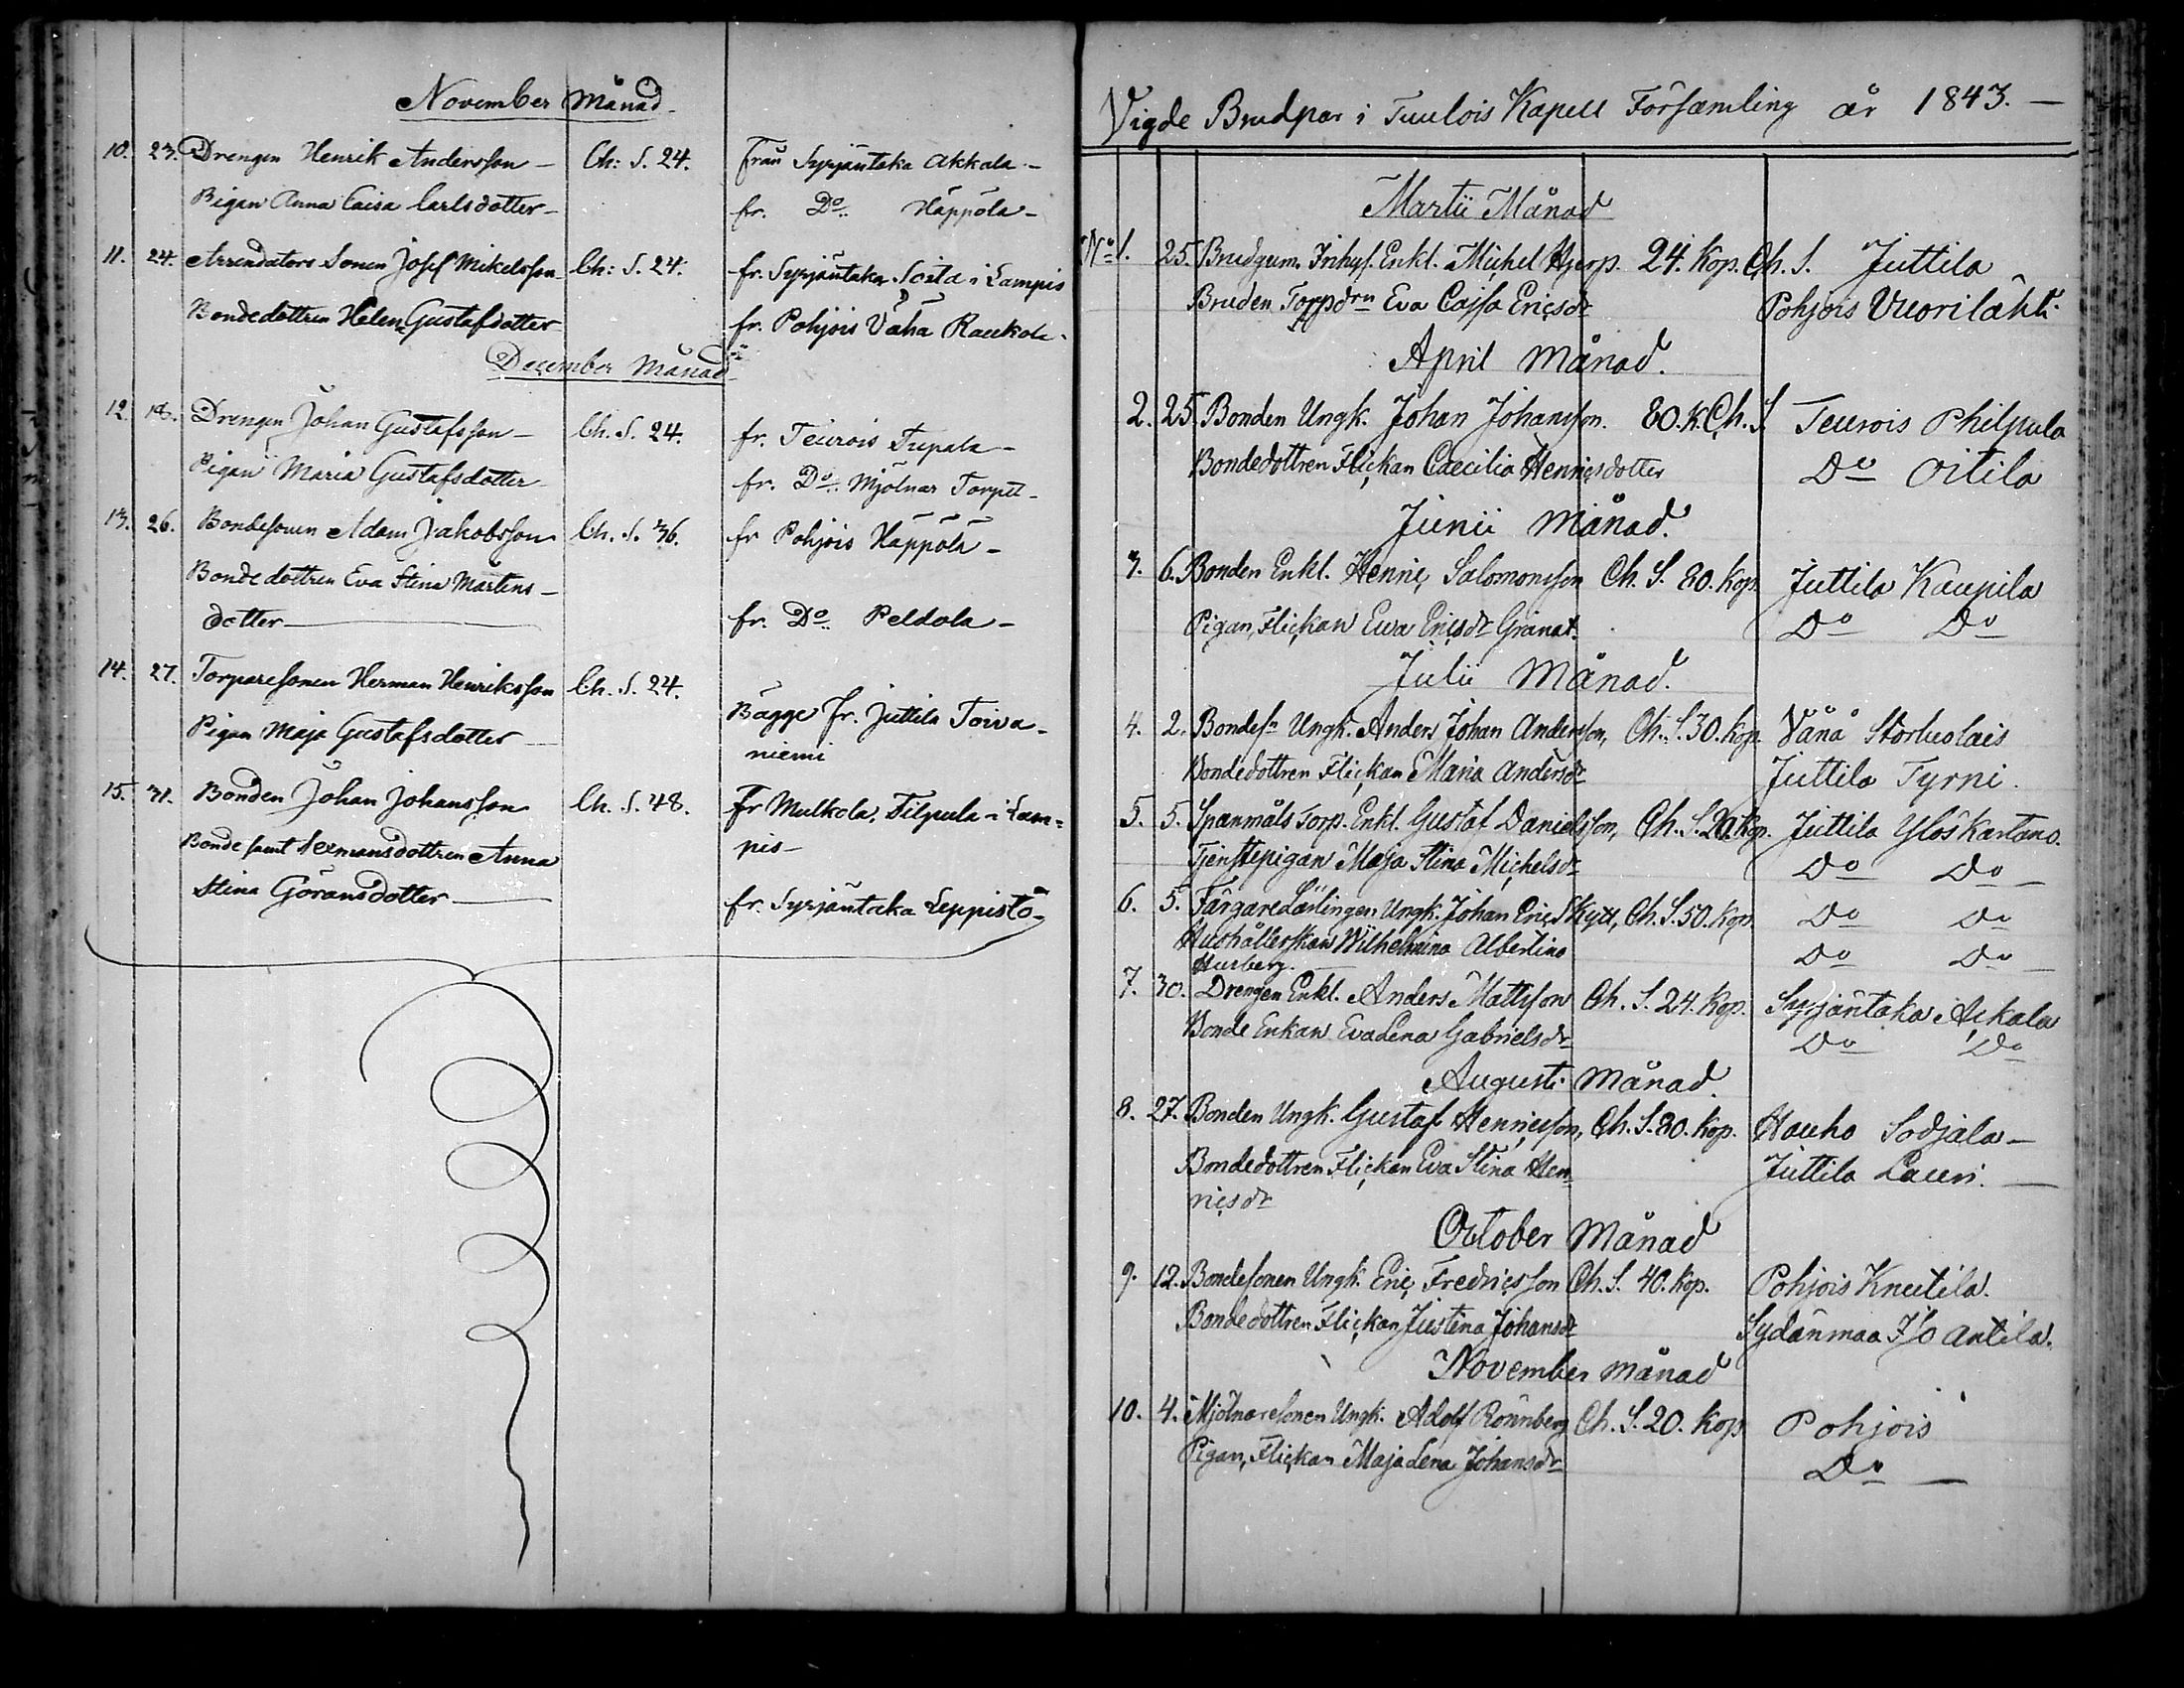 November Månad
10. 23. Drengen Henrik Andersson Ch: S. 24. från Syrjäntaka Akkala
Pigan Anna Caisa Carlsdotter fr. Do Häppölä
11. 24. Arrendators Sonen Josef Mikelsson Ch: S. 24. fr. Syrjäntaka Soita i Lampis
Bondedottren Helena Gustafsdotter fr. Pohjois Vähä Raukola
December Månad
12. 18. Drengen Johan Gustafsson Ch. S. 24. fr. Teurois Tupala
Pigan Maria Gustafsdotter fr. Do Mjölnar Torpet
13. 26. Bondesonen Adam Jakobsson Ch. S. 36. fr Pohjois Häppölä
Bondedottren Eva Stina Mårtens
dotter fr. Do Peldola
14. 27. Torparesonen Herman Henriksson Ch. S. 24.
Bägge fr. Juttila Toiva
Pigan Maja Gustafsdotter
niemi
15. 31. Bonden Johan Johansson Ch. S. 48. Fr Mulkola, Filpula i Lam=
Bonde samt Sexmansdottren Anna pis
Stina Göransdotter fr. Syrjäntaka Leppistö
Vigde Brudpar i Tuulois Kapell Församling år 1843.
Martii Månad
No 1. 25. Brudgum. Inhys. Enkl. Michel Hjerp. 24. Kop. Ch. S. Juttila
Bruden Torpdrn Eva Cajsa Ericsdr Pohjois Vuorilähti
April Månad.
2. 25. Bonden Ungk. Johan Johansson. 80. K. Ch. S. Teurois Philpula
Bondedottren Flickan Cæcilia Henricsdotter Do Oitila
Junii Månad.
3. 6. Bonden Enkl. Henric Salomonsson Ch. S. 80. Kop. Juttila Kaupila
Pigan, Flickan Ewa Ericsdr Granat. Do Do
Julii Månad.
4. 2. Bondesn Ungk. Anders Johan Andersson, Ch. S. 30. Kop. Vånå Storluolais
Bondedottren Flickan Maria Andersdr Juttila Tyrni.
5. 5. Spanmåls Torp. Enkl. Gustaf Danielsson, Ch. S. 20. Kop. Juttila Ylöskartano.
Tjenstepigan Maja Stina Michelsdr Do Do
6. 5. Färgare Lärlingen Ungk. Johan Eric Skytt, Ch. S. 50. Kop. Do Do
Hushållerskan Wilhelmina Albertina Do Do
Hurberg.
7. 30. Drengen Enkl. Anders Mattsson Ch. S. 24. Kop. Syrjäntaka Ackala
Bonde Enkan Eva Lena Gabrielsdr Do Do
Augusti Månad.
8. 27. Bonden Ungk. Gustaf Henricsson, Ch. S. 80. Kop. Hauho Sodjala
Bondedottren Flickan Eva Stina Hen Juttila Lauri.
ricsdr
October Månad
9. 12. Bondesonen Ungk. Eric Fredricsson Ch. S. 40. Kop. Pohjois Knutila.
Bondedottren Flickan Justina Johansdr Sydänmaa Antila.
November månad
10. 4. Mjölnaresonen Ungk. Adolf Rönnberg Ch. S. 20. Kop Pohjois
Pigan, Flickan Maja Lena Johansdr Do